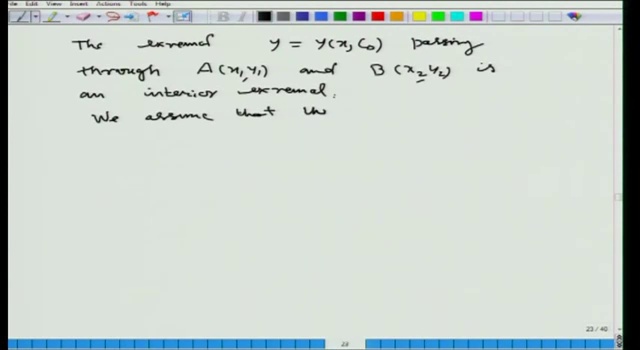 File Edit View Insert Actions Tools Help
The extremal y = y(x, C₀) passing
through A(x₁, y₁) and B(x₂, y₂) is
an interior extremal.
We assume that th
23 / 40
23